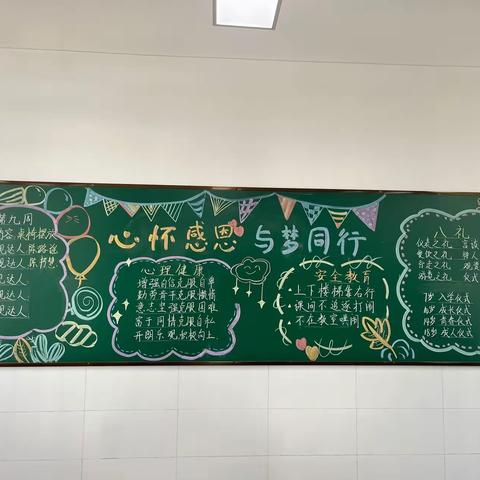 第九周
内容:桌椅摆放
现达人:陈路遥
现达人:陈书慧
现达人:
现达人:
现达人:
心怀感恩 与梦同行
心理健康
增强自信克服自卑
勤劳奋斗克服懒惰
意志坚强克服困难
富于同情克服自私
开朗乐观积极向上.
安全教育
上下楼梯靠右行
课间不追逐打闹
不在教室哄闹
八礼
仪表之礼 言谈
餐饮之礼 待人
行走之礼 观赏
游览之礼 仪式
7岁 入学仪式
10岁 成长仪式
14岁 青春仪式
18岁 成人仪式